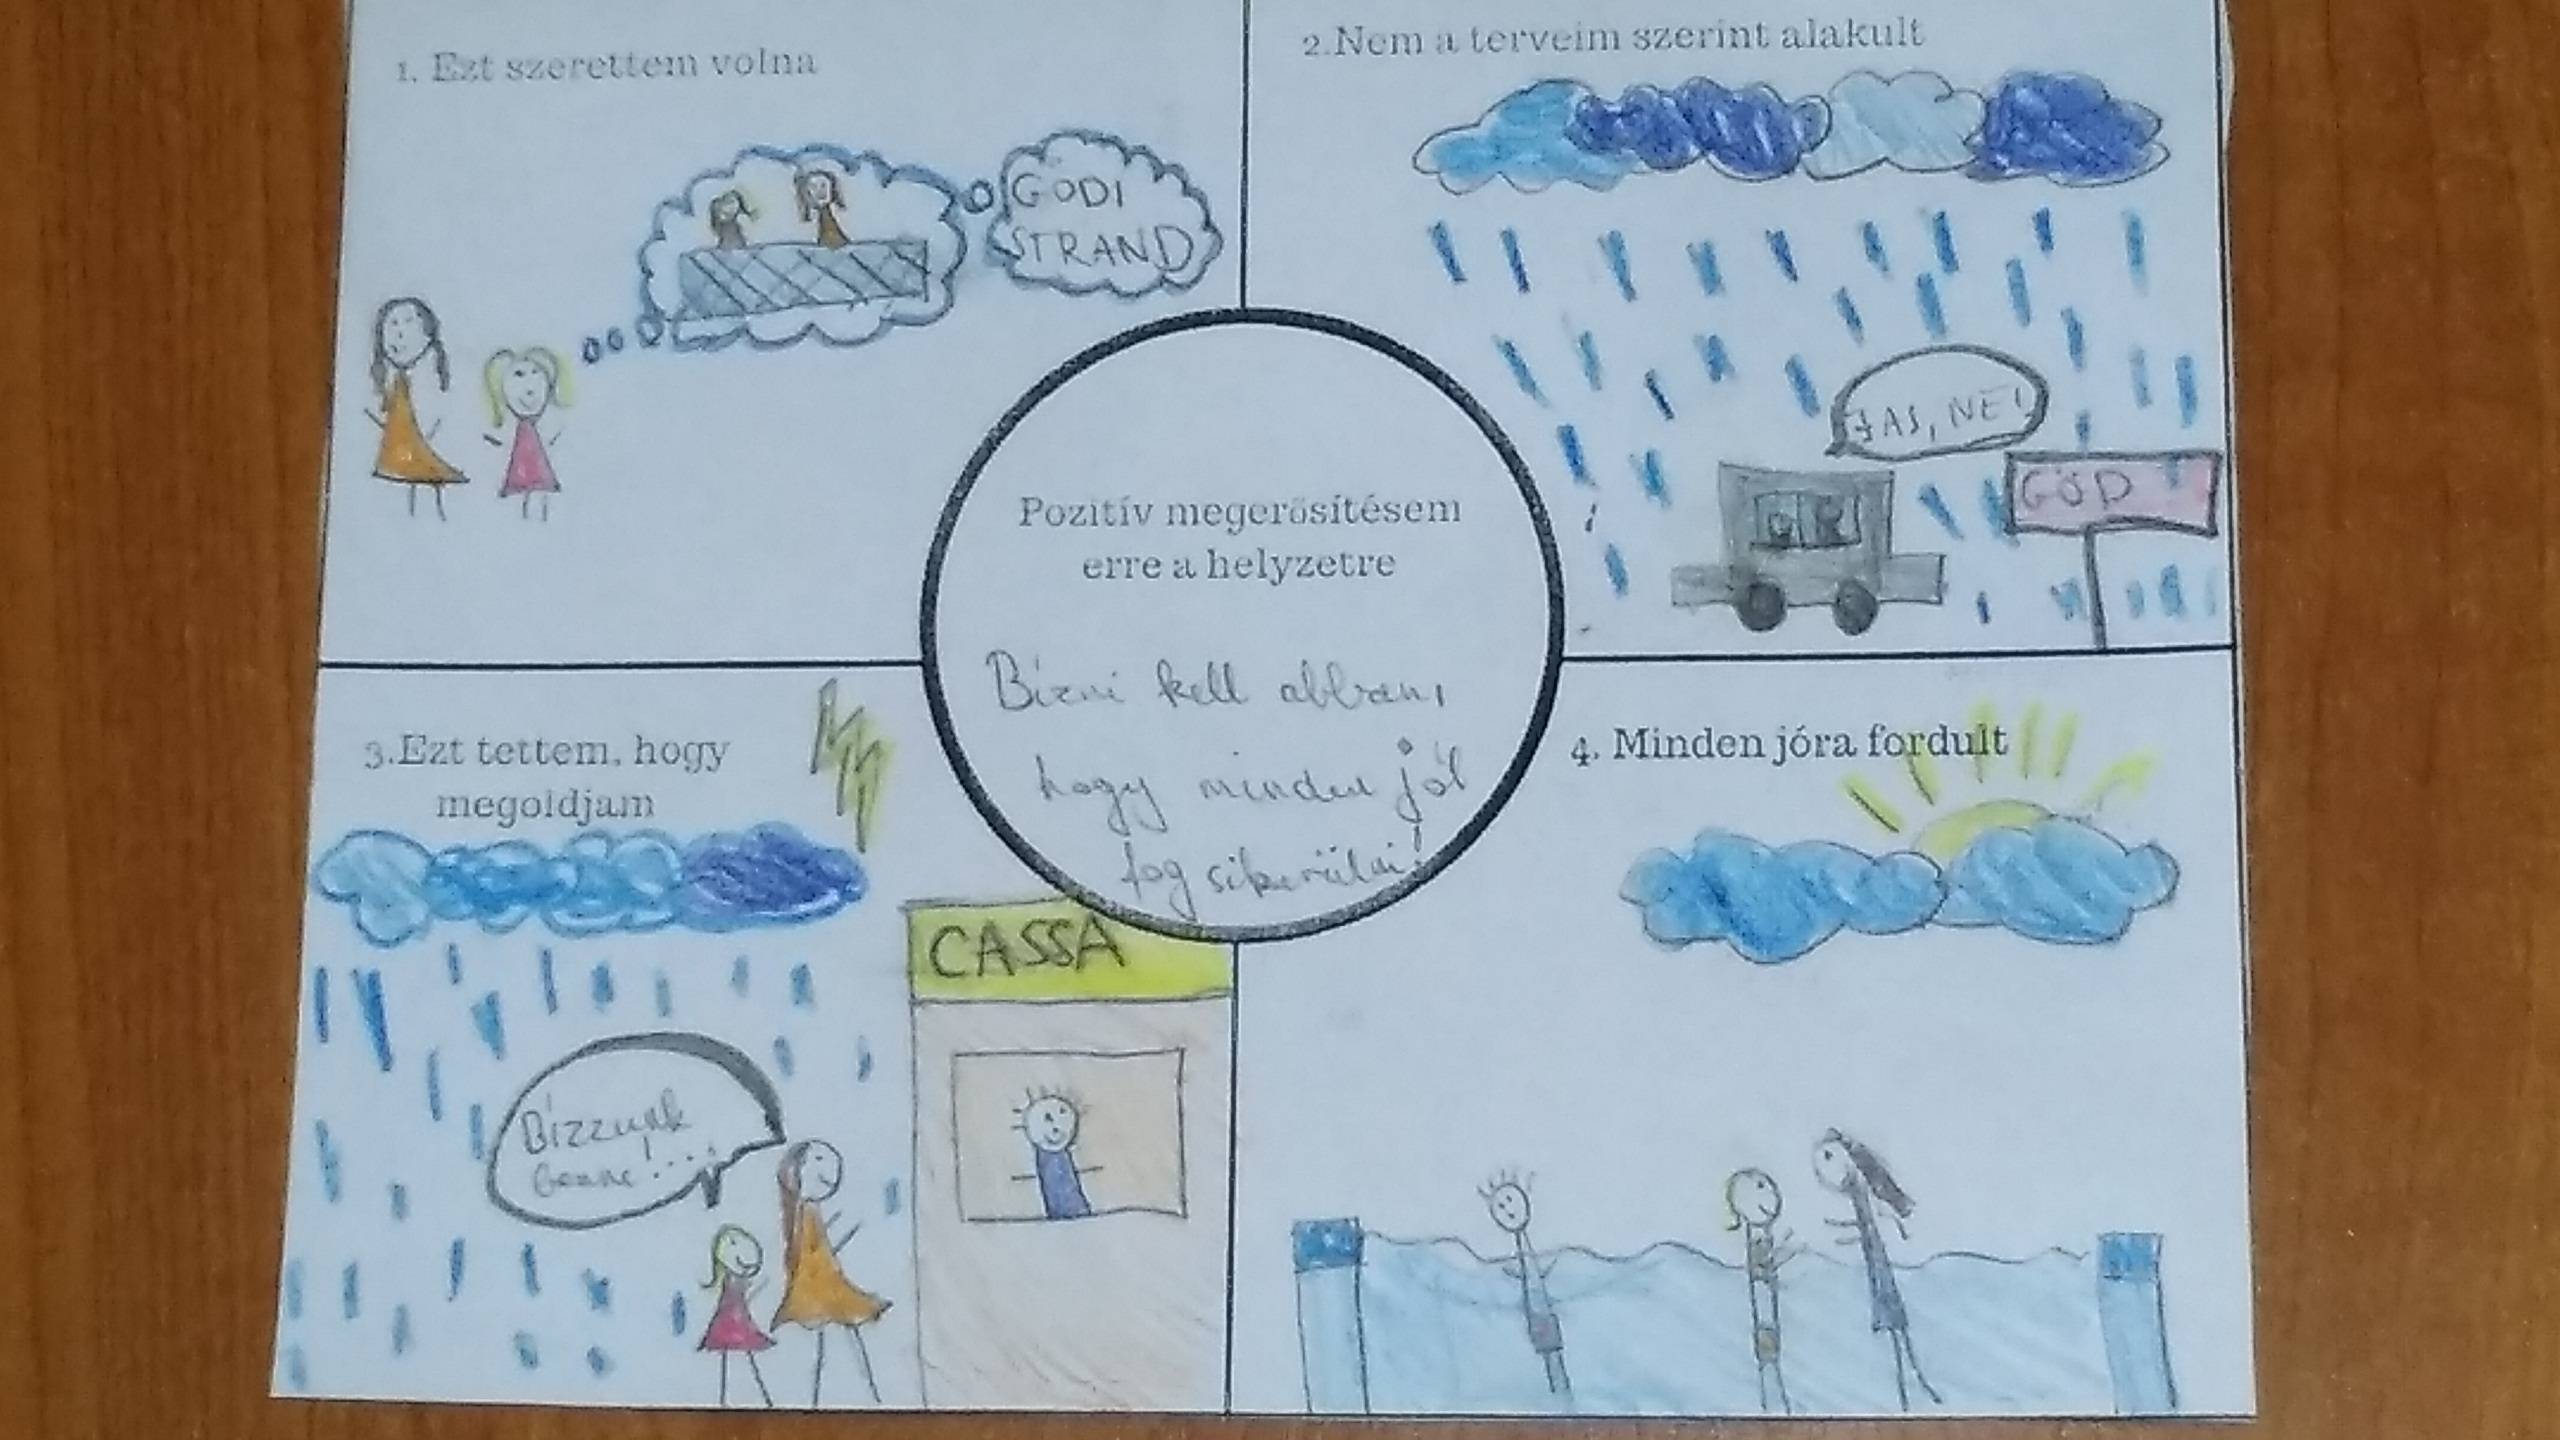 1. Ezt szerettem volna
GÖDI
STRAND
2.Nem a terveim szerint alakult
JAJ, NE!
GÖD
Pozitív megerősítésem
erre a helyzetre
Bízni kell abban,
hogy minden jól
fog sikerülni!
3.Ezt tettem, hogy
megoldjam
CASSA
Bízzunk
benne!....
4. Minden jóra fordult